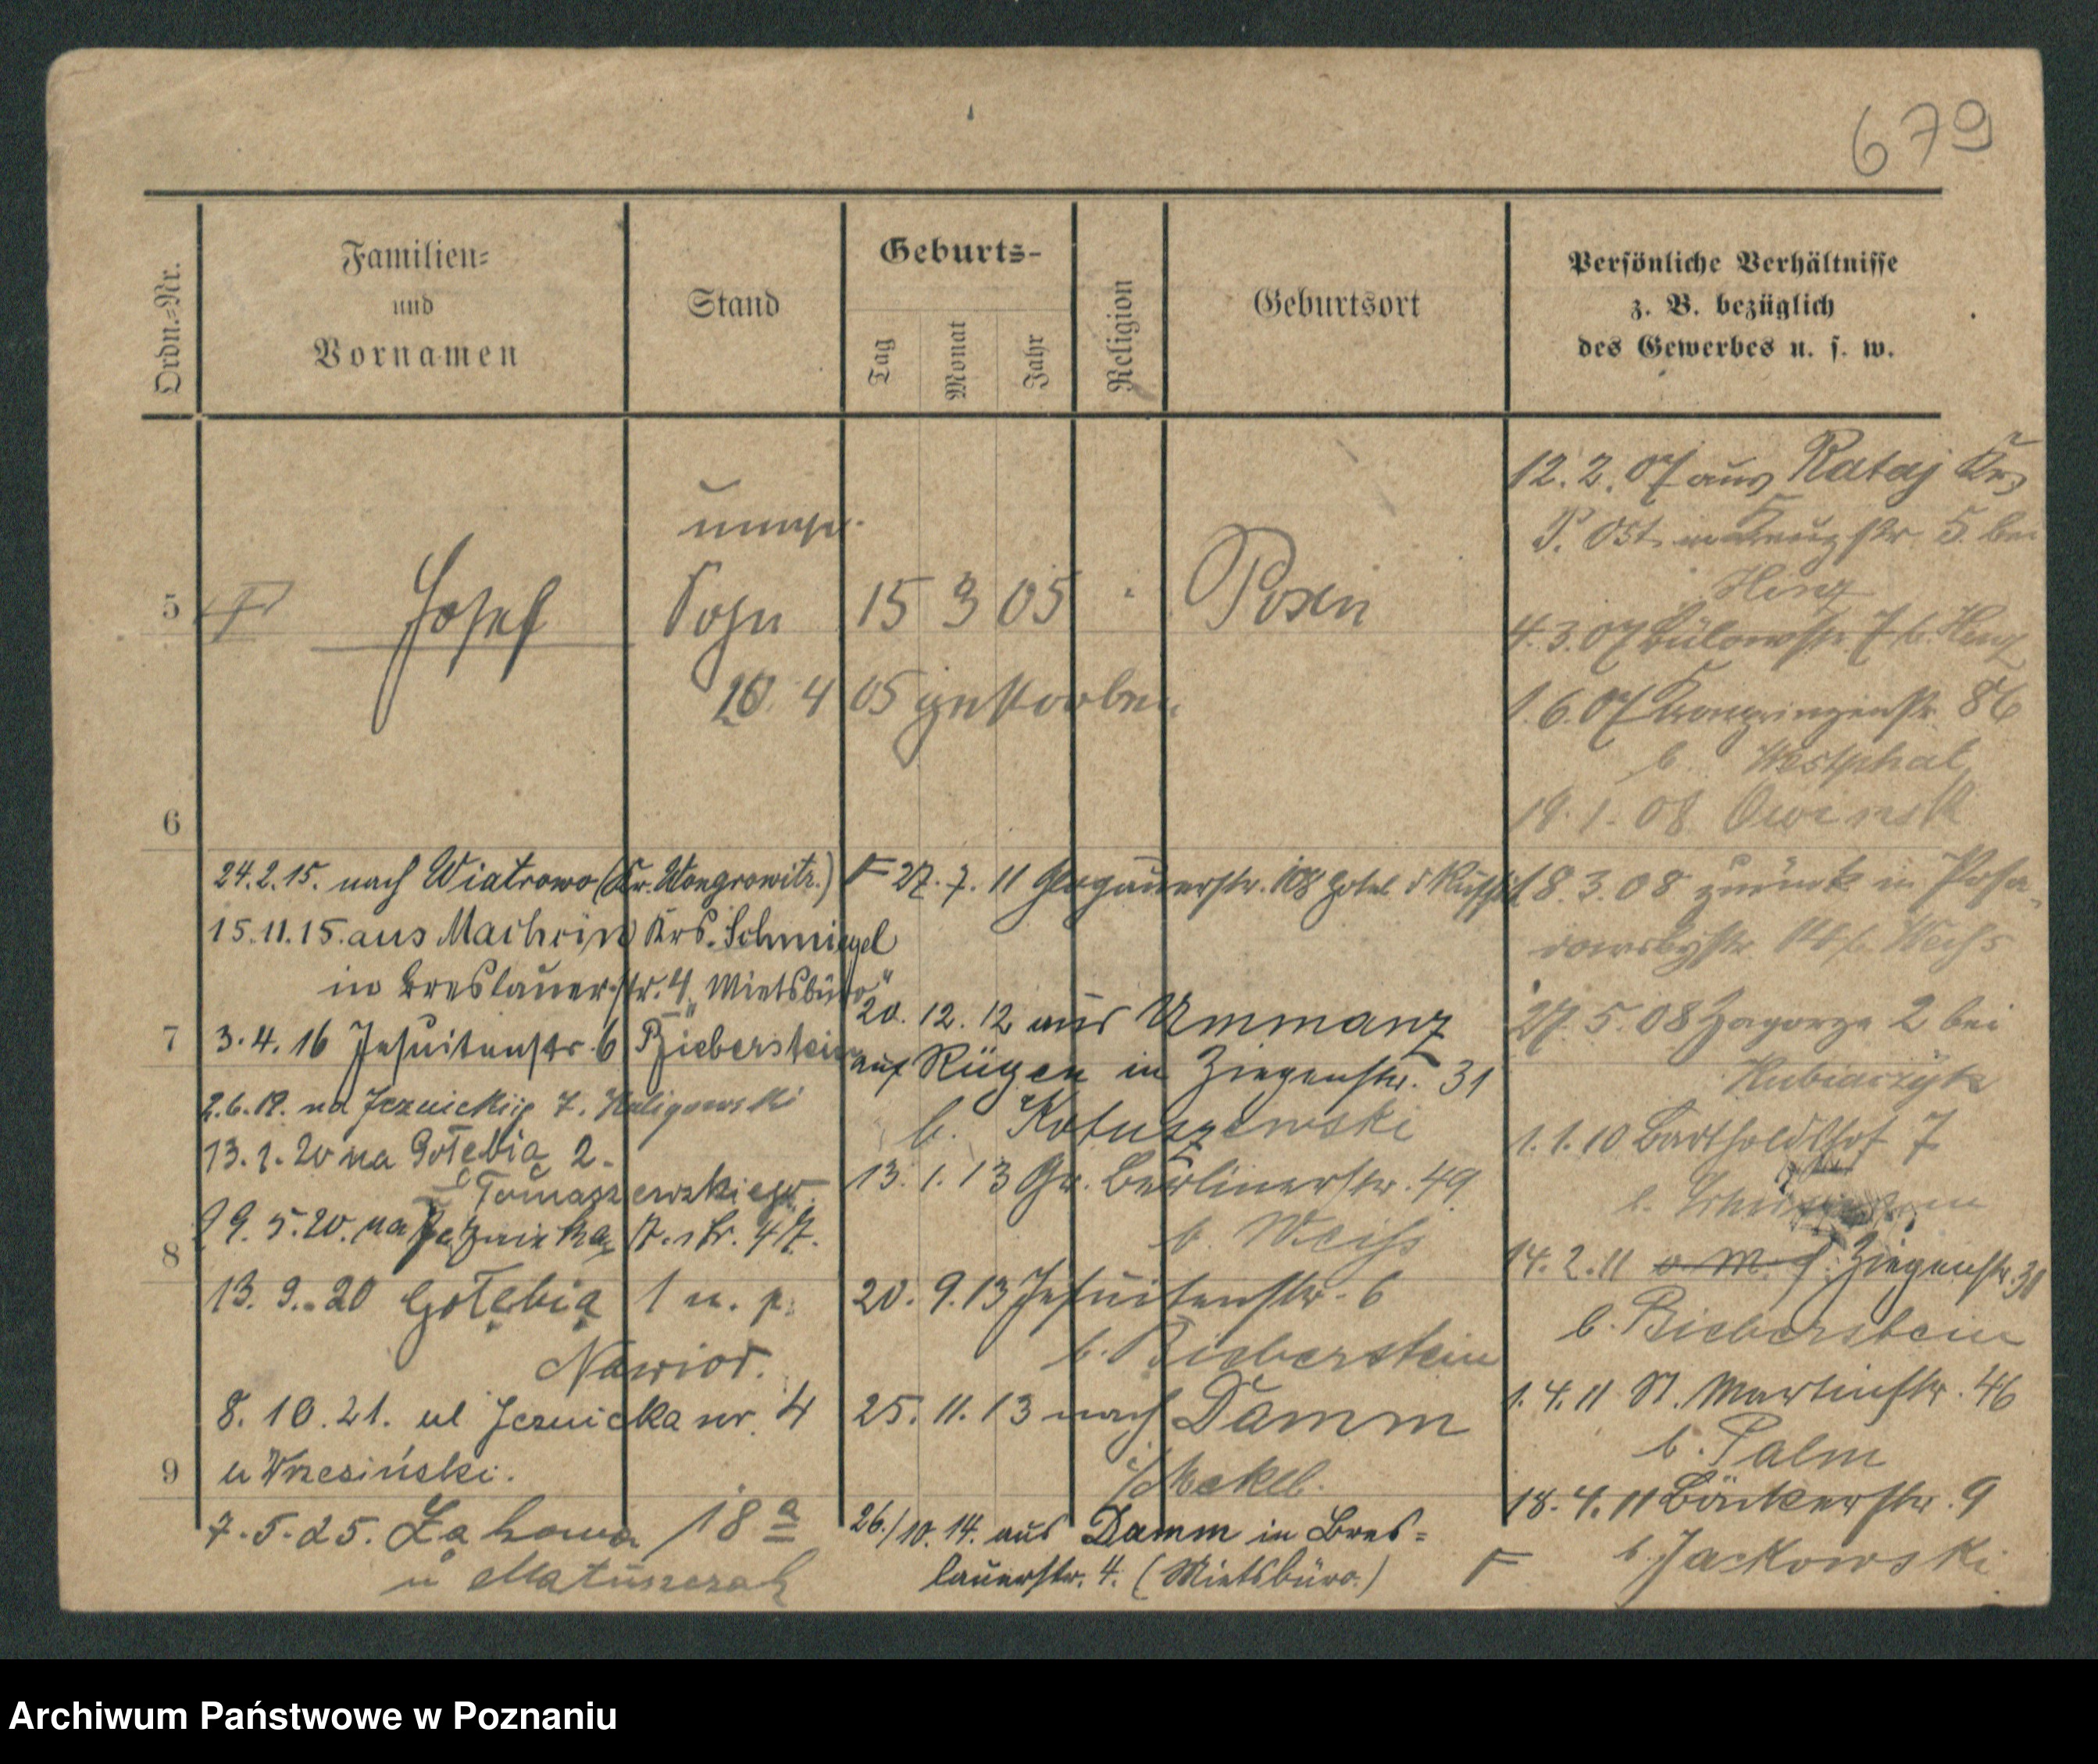 679
Ordn.-Nr.
Familien-
und
Vornamen
Stand
Geburts-
Tag
Monat
Jahr
Religion
Geburtsort
Persönliche Verhältnisse
z. B. bezüglich
des Gewerbes u. s. w.
5
Josef
Sohn
15 3 05
Posen
20 4 05 gestorben
6
24.2.15. nach Wiatrowo (Kr. Wongrowitz.)
15.11.15. aus Machcin Krs. Schmiegel
in Breslauerstr. 4 „Mietsbüro“
7
3.4.16 Jesuitenstr. 6 Bieberstein
na Jezuickiej
13.1.20 na Gołębią 2.
Tomaszewskiego
19.5.20. na
8
13.9.20 Gołębia 1 u. p.
Nawrot.
8.10.21. ul Jezuicka nr. 4
9
u Wrzesiński.
7.5.25. Łąkowa 18 a
u Matuszczak
27.7.11 Glogauerstr. 108 Hotel
20.12.12 aus Ummanz
auf Rügen in Ziegenstr. 31
b. Kotuszewski
13.1.13 Gr. Berlinerstr. 49
b. Weiss
20.9.13 Jesuitenstr. 6
b. Bieberstein
25.11.13 nach Damm
i/Mekl.
26./10.14. aus Damm in Bres-
lauerstr. 4. (Mietsbüro.)
12.2.07 aus Rataj Krs
P. Ost str. 5 bei
Henz
4.3.07 Bülowstr. 7 b. Henz
1.6.07 Kronprinzenstr. 86
b. Westphal
19.1.08 Owinsk
18.3.08 zurück in Posa-
dowskystr.
27.5.08 Zagorze 2 bei
Kubiaczyk
1.1.10 Bartholdshof 7
14.2.11 Ziegenstr. 31
b. Bieberstein
1.4.11 St. Martinstr. 46
b. Palm
18.4.11 Bäckerstr. 9
b. Jackowski
Archiwum Państwowe w Poznaniu